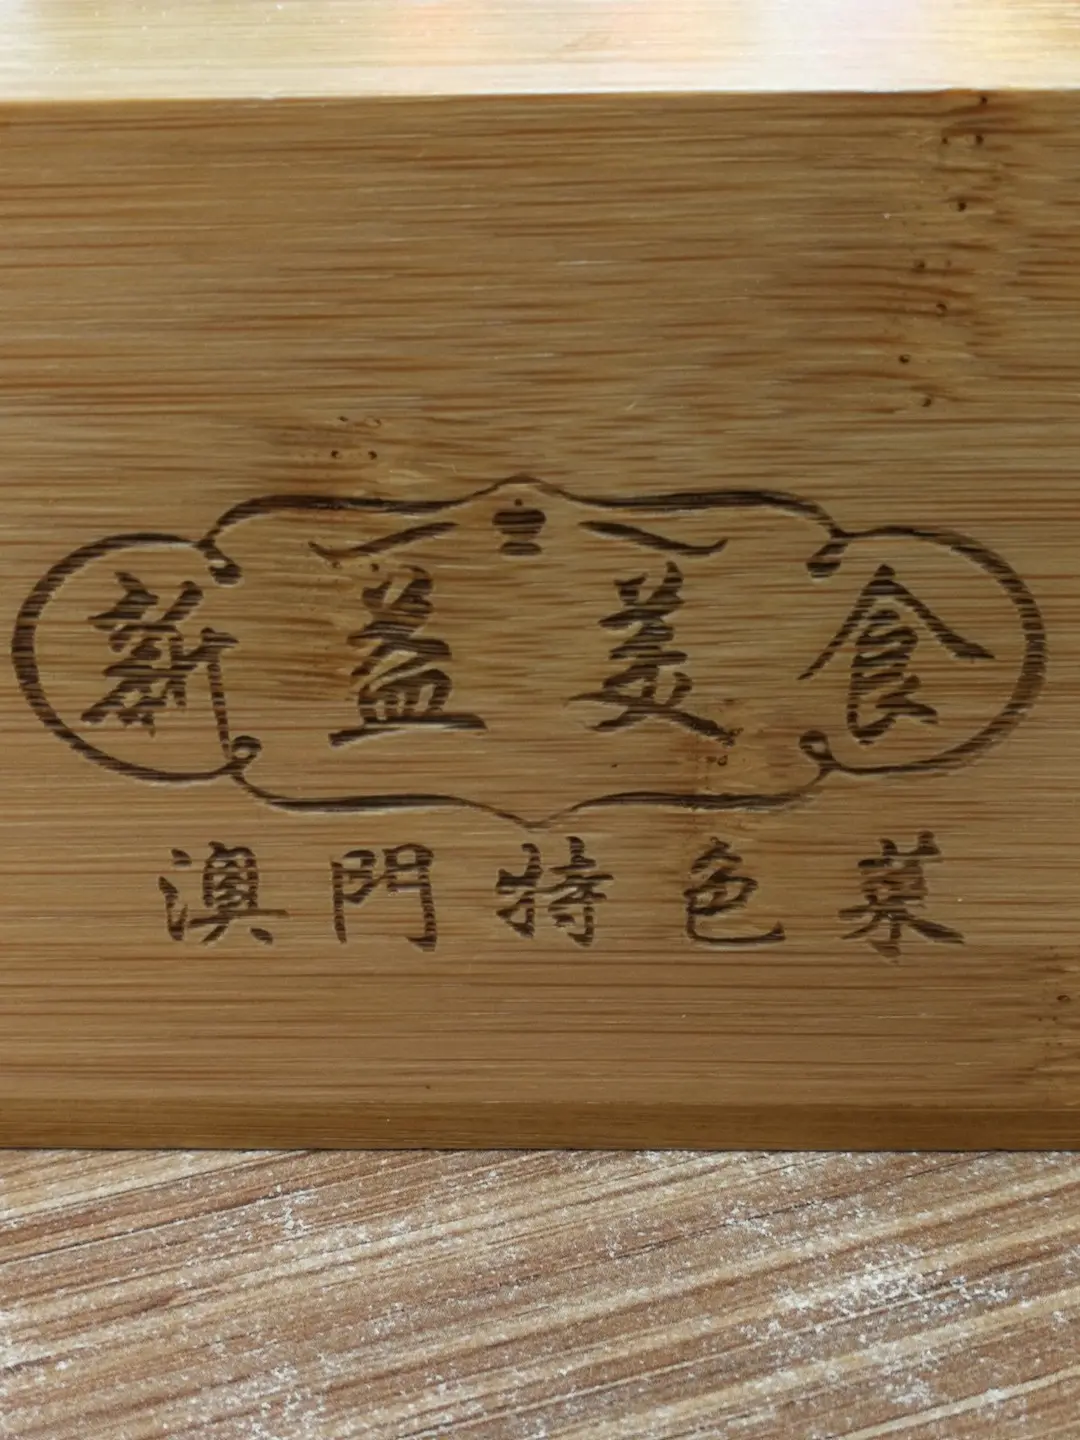 新益美食
澳門特色菜